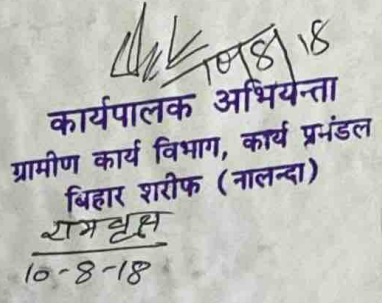 10/8/18
कार्यपालक अभियन्ता
ग्रामीण कार्य विभाग, कार्य प्रमंडल
बिहार शरीफ (नालन्दा)
रामवृक्ष
10-8-18